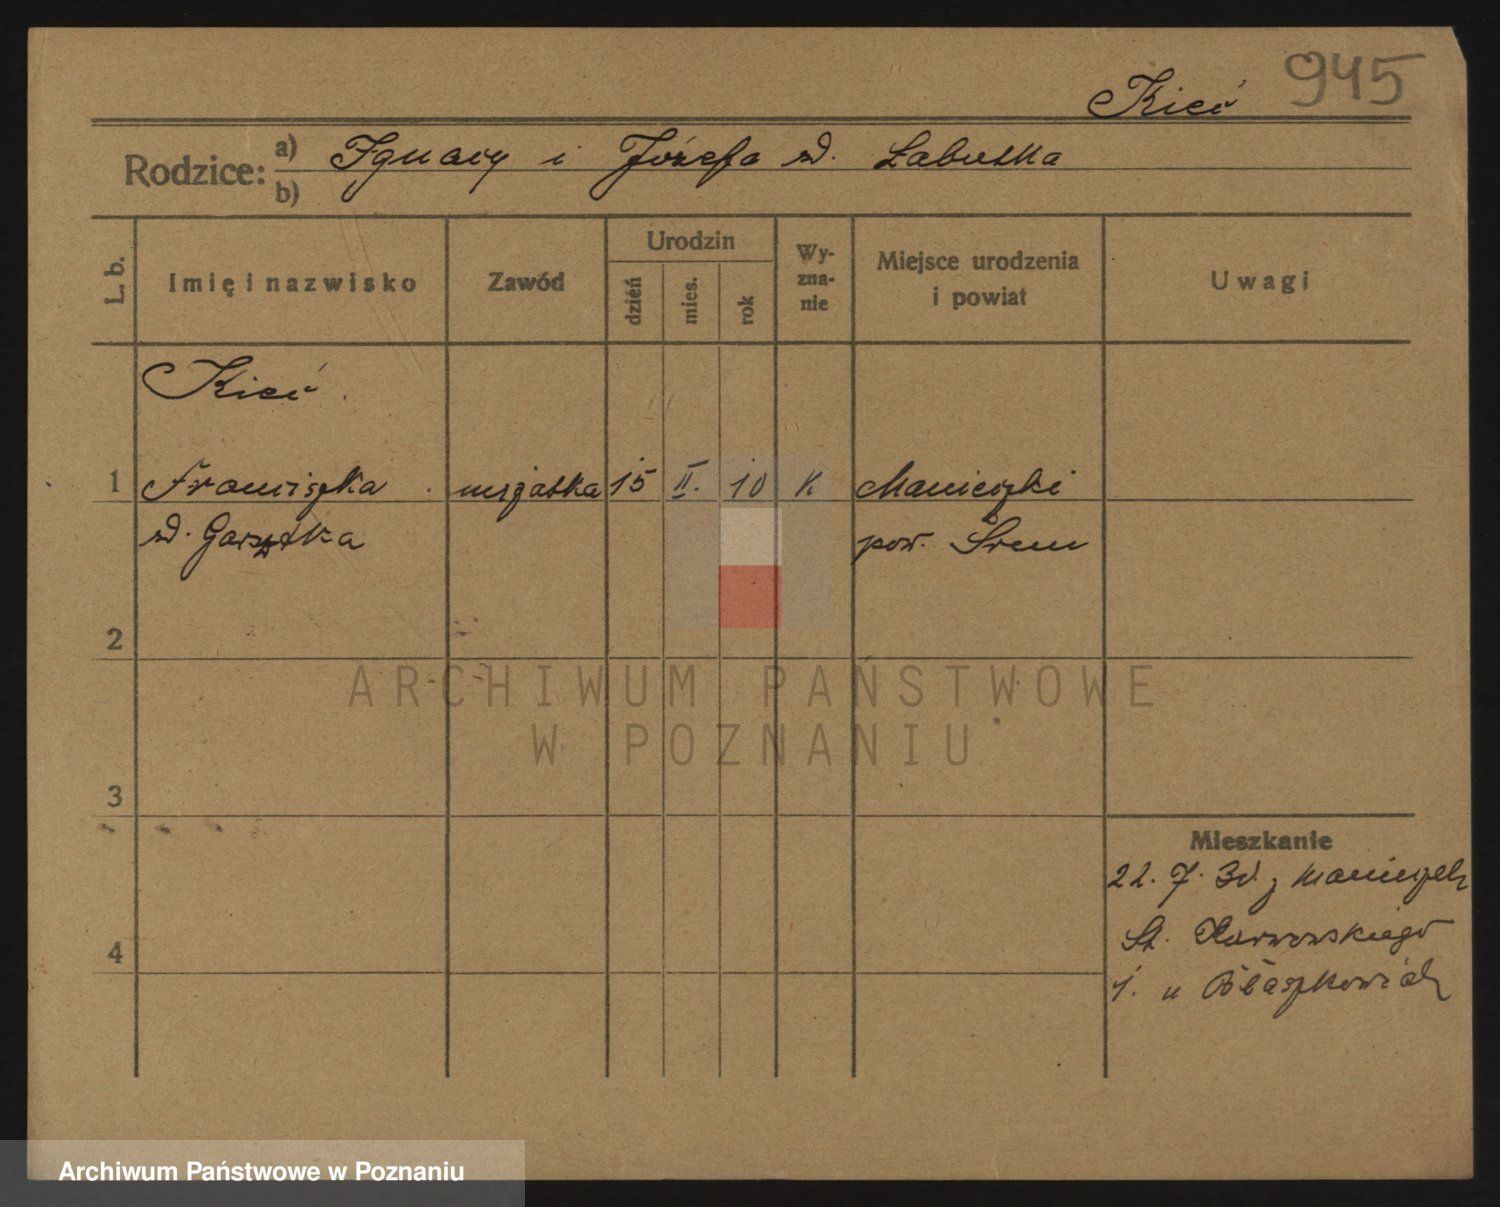 945
Kieć
Rodzice: a) Ignacy i Józefa zd. Łabuska
b)
L. b.
Imię i nazwisko
Zawód
Urodzin
dzień
mies.
rok
Wy-
zna-
nie
Miejsce urodzenia
i powiat
Uwagi
Kieć
1 Franciszka mężatka 15 II. 10 K Manieczki
zd. Garsztka pow. Śrem
2
ARCHIWUM PAŃSTWOWE
W POZNANIU
3
Mieszkanie
22. 7. 30. z Manieczek
4 St. Karwowskiego
1. u Błaszkowiak
Archiwum Państwowe w Poznaniu